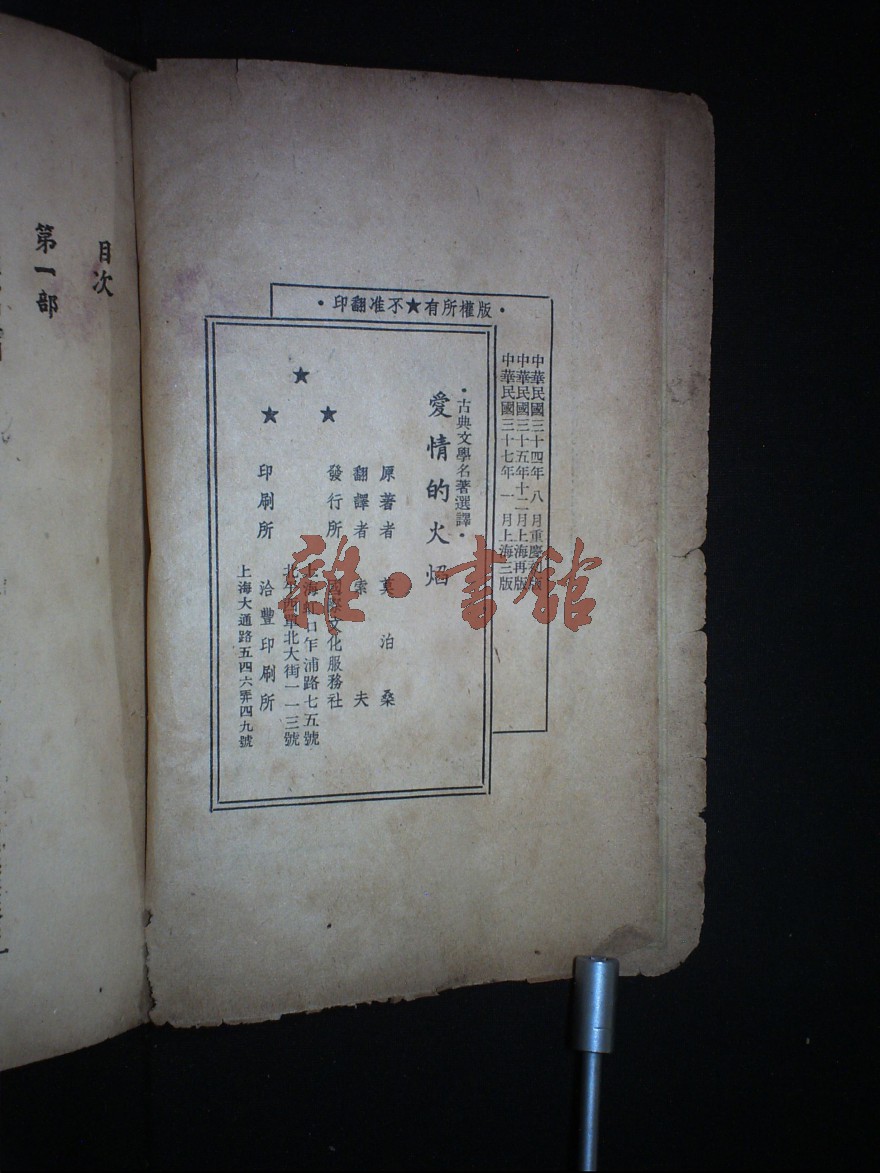 •版權所有★不准翻印•
中華民國三十四年 八 月重慶初版
中華民國三十五年十二月上海再版
中華民國三十七年 一 月上海三版
•古典文學名著選譯•
愛情的火焰
原著者 莫泊桑
翻譯者 索夫
發行所 國際文化服務社
上海虹口乍浦路七五號
北平西單北大街一一三號
印刷所 洽豐印刷所
上海大通路五四六弄四九號
目次
第一部
雜·書館